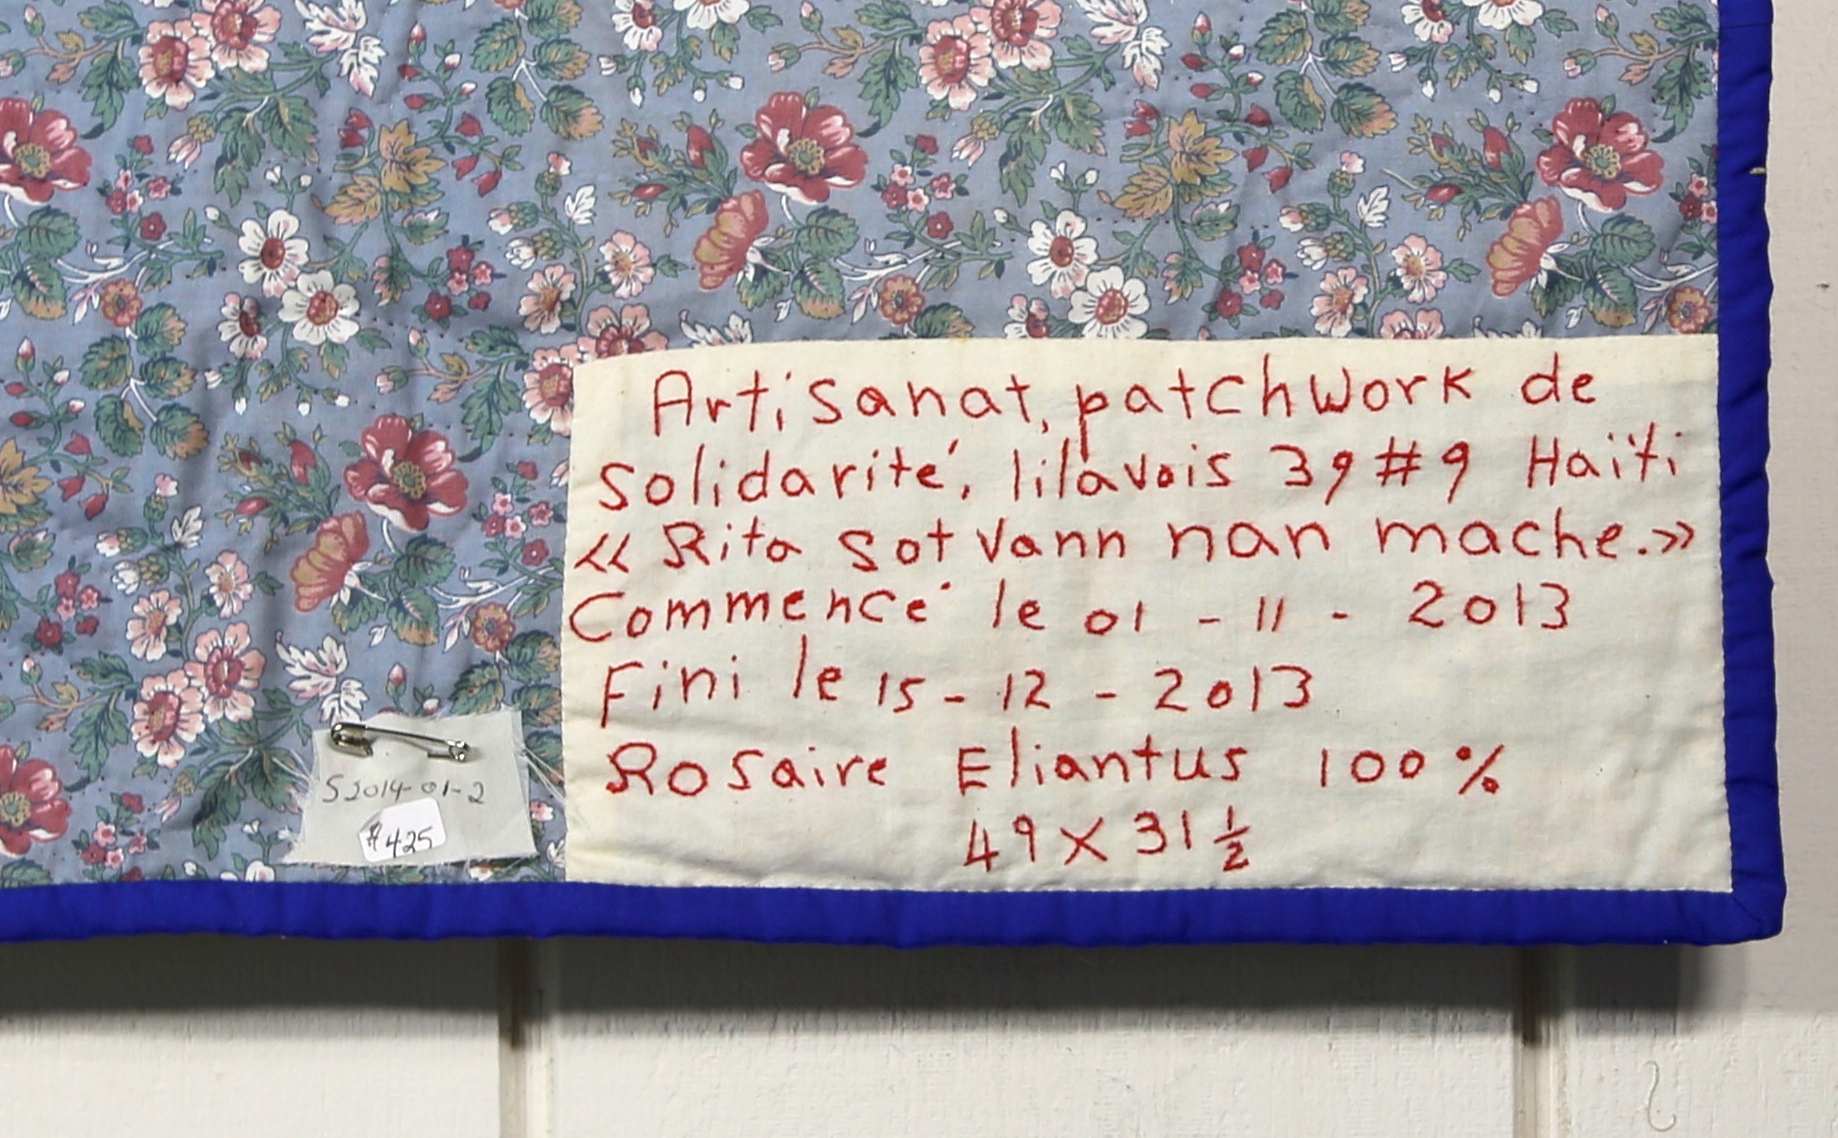 Artisanat, patchwork de
Solidarité, lilavois 39 #9 Haïti
« Rita sot vann nan mache. »
Commencé le 01 - 11 - 2013
Fini le 15 - 12 - 2013
Rosaire Eliantus 100%
49 X 31 ½
S2014-01-2
$425